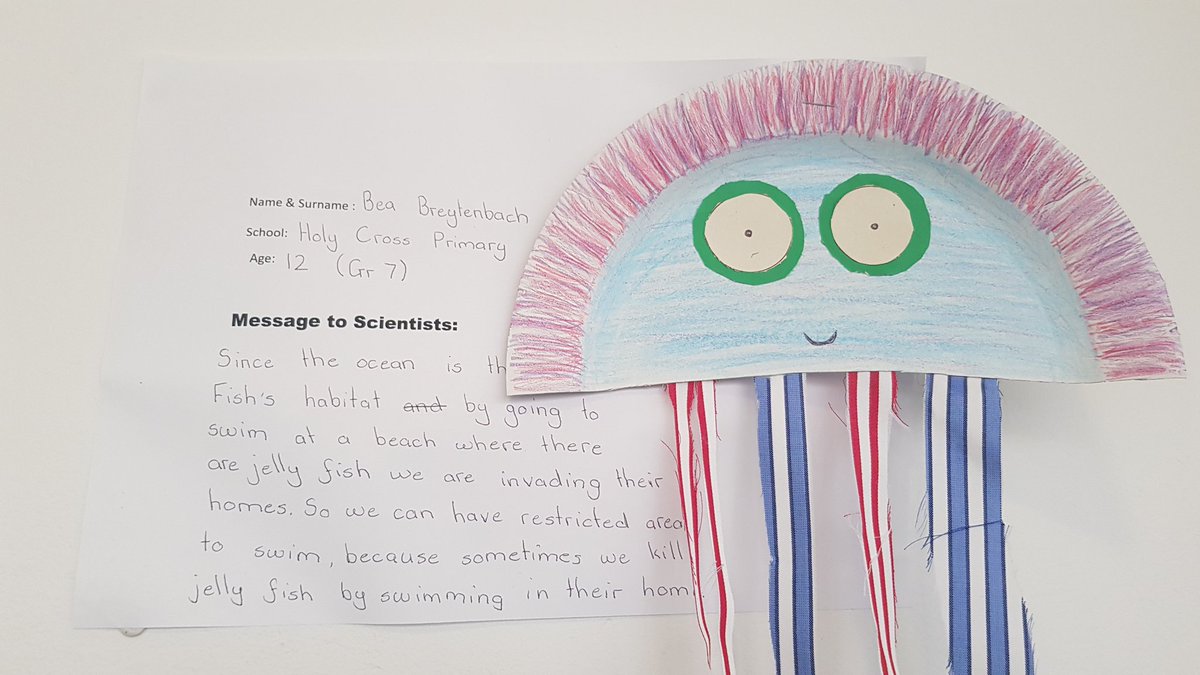 Name & Surname : Bea Breytenbach
School: Holy Cross Primary
Age: 12 (Gr 7)
Message to Scientists:
Since the ocean is
Fish's habitat and by going to
swim at a beach where there
are jelly fish we are invading their
homes. So we can have restricted
to swim, because sometimes we kill
jelly fish by swimming in their